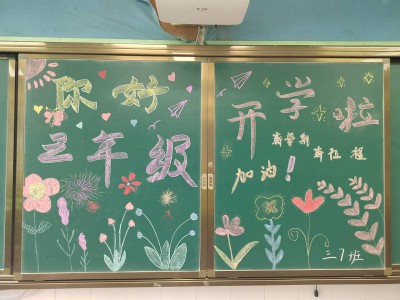 你好
三年级
开学啦
新学期
新征程
加油!
三7班